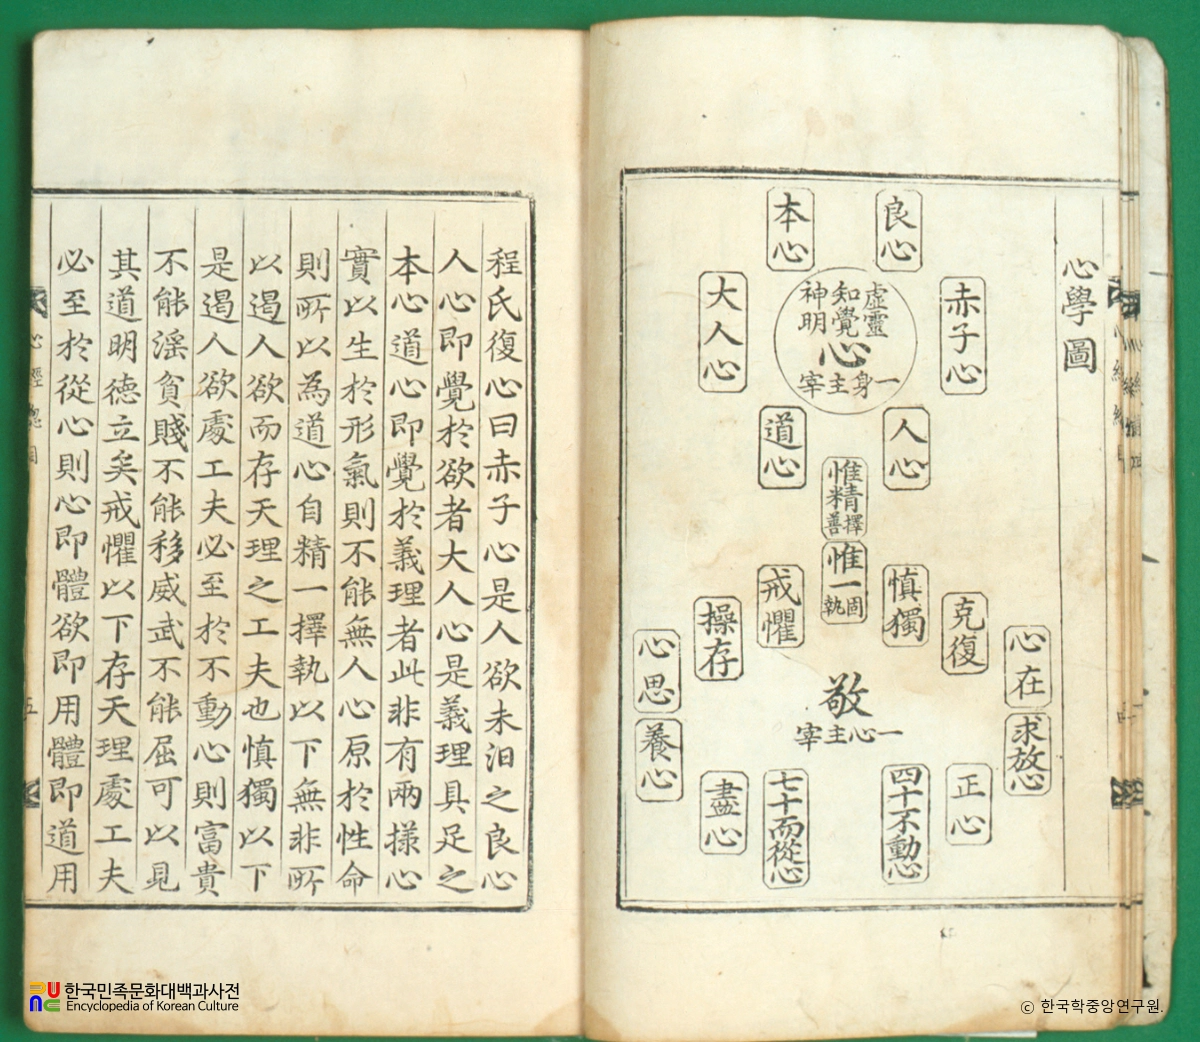 心學圖
良心
本心
赤子心
大人心
虛靈
知覺
神明
心
一身主宰
人心
道心
惟精
擇善
惟一
固執
慎獨
戒懼
克復
操存
心在
心思
求放心
養心
敬
一心主宰
正心
盡心
四十不動心
七十而從心
程氏復心曰赤子心是人欲未汩之良心
人心即覺於欲者大人心是義理具足之
本心道心即覺於義理者此非有兩樣心
實以生於形氣則不能無人心原於性命
則所以為道心自精一擇執以下無非所
以遏人欲而存天理之工夫也慎獨以下
是遏人欲處工夫必至於不動心則富貴
不能淫貧賤不能移威武不能屈可以見
其道明德立矣戒懼以下存天理處工夫
必至於從心則心即體欲即用體即道用
한국민족문화대백과사전
Encyclopedia of Korean Culture
ⓒ 한국학중앙연구원.